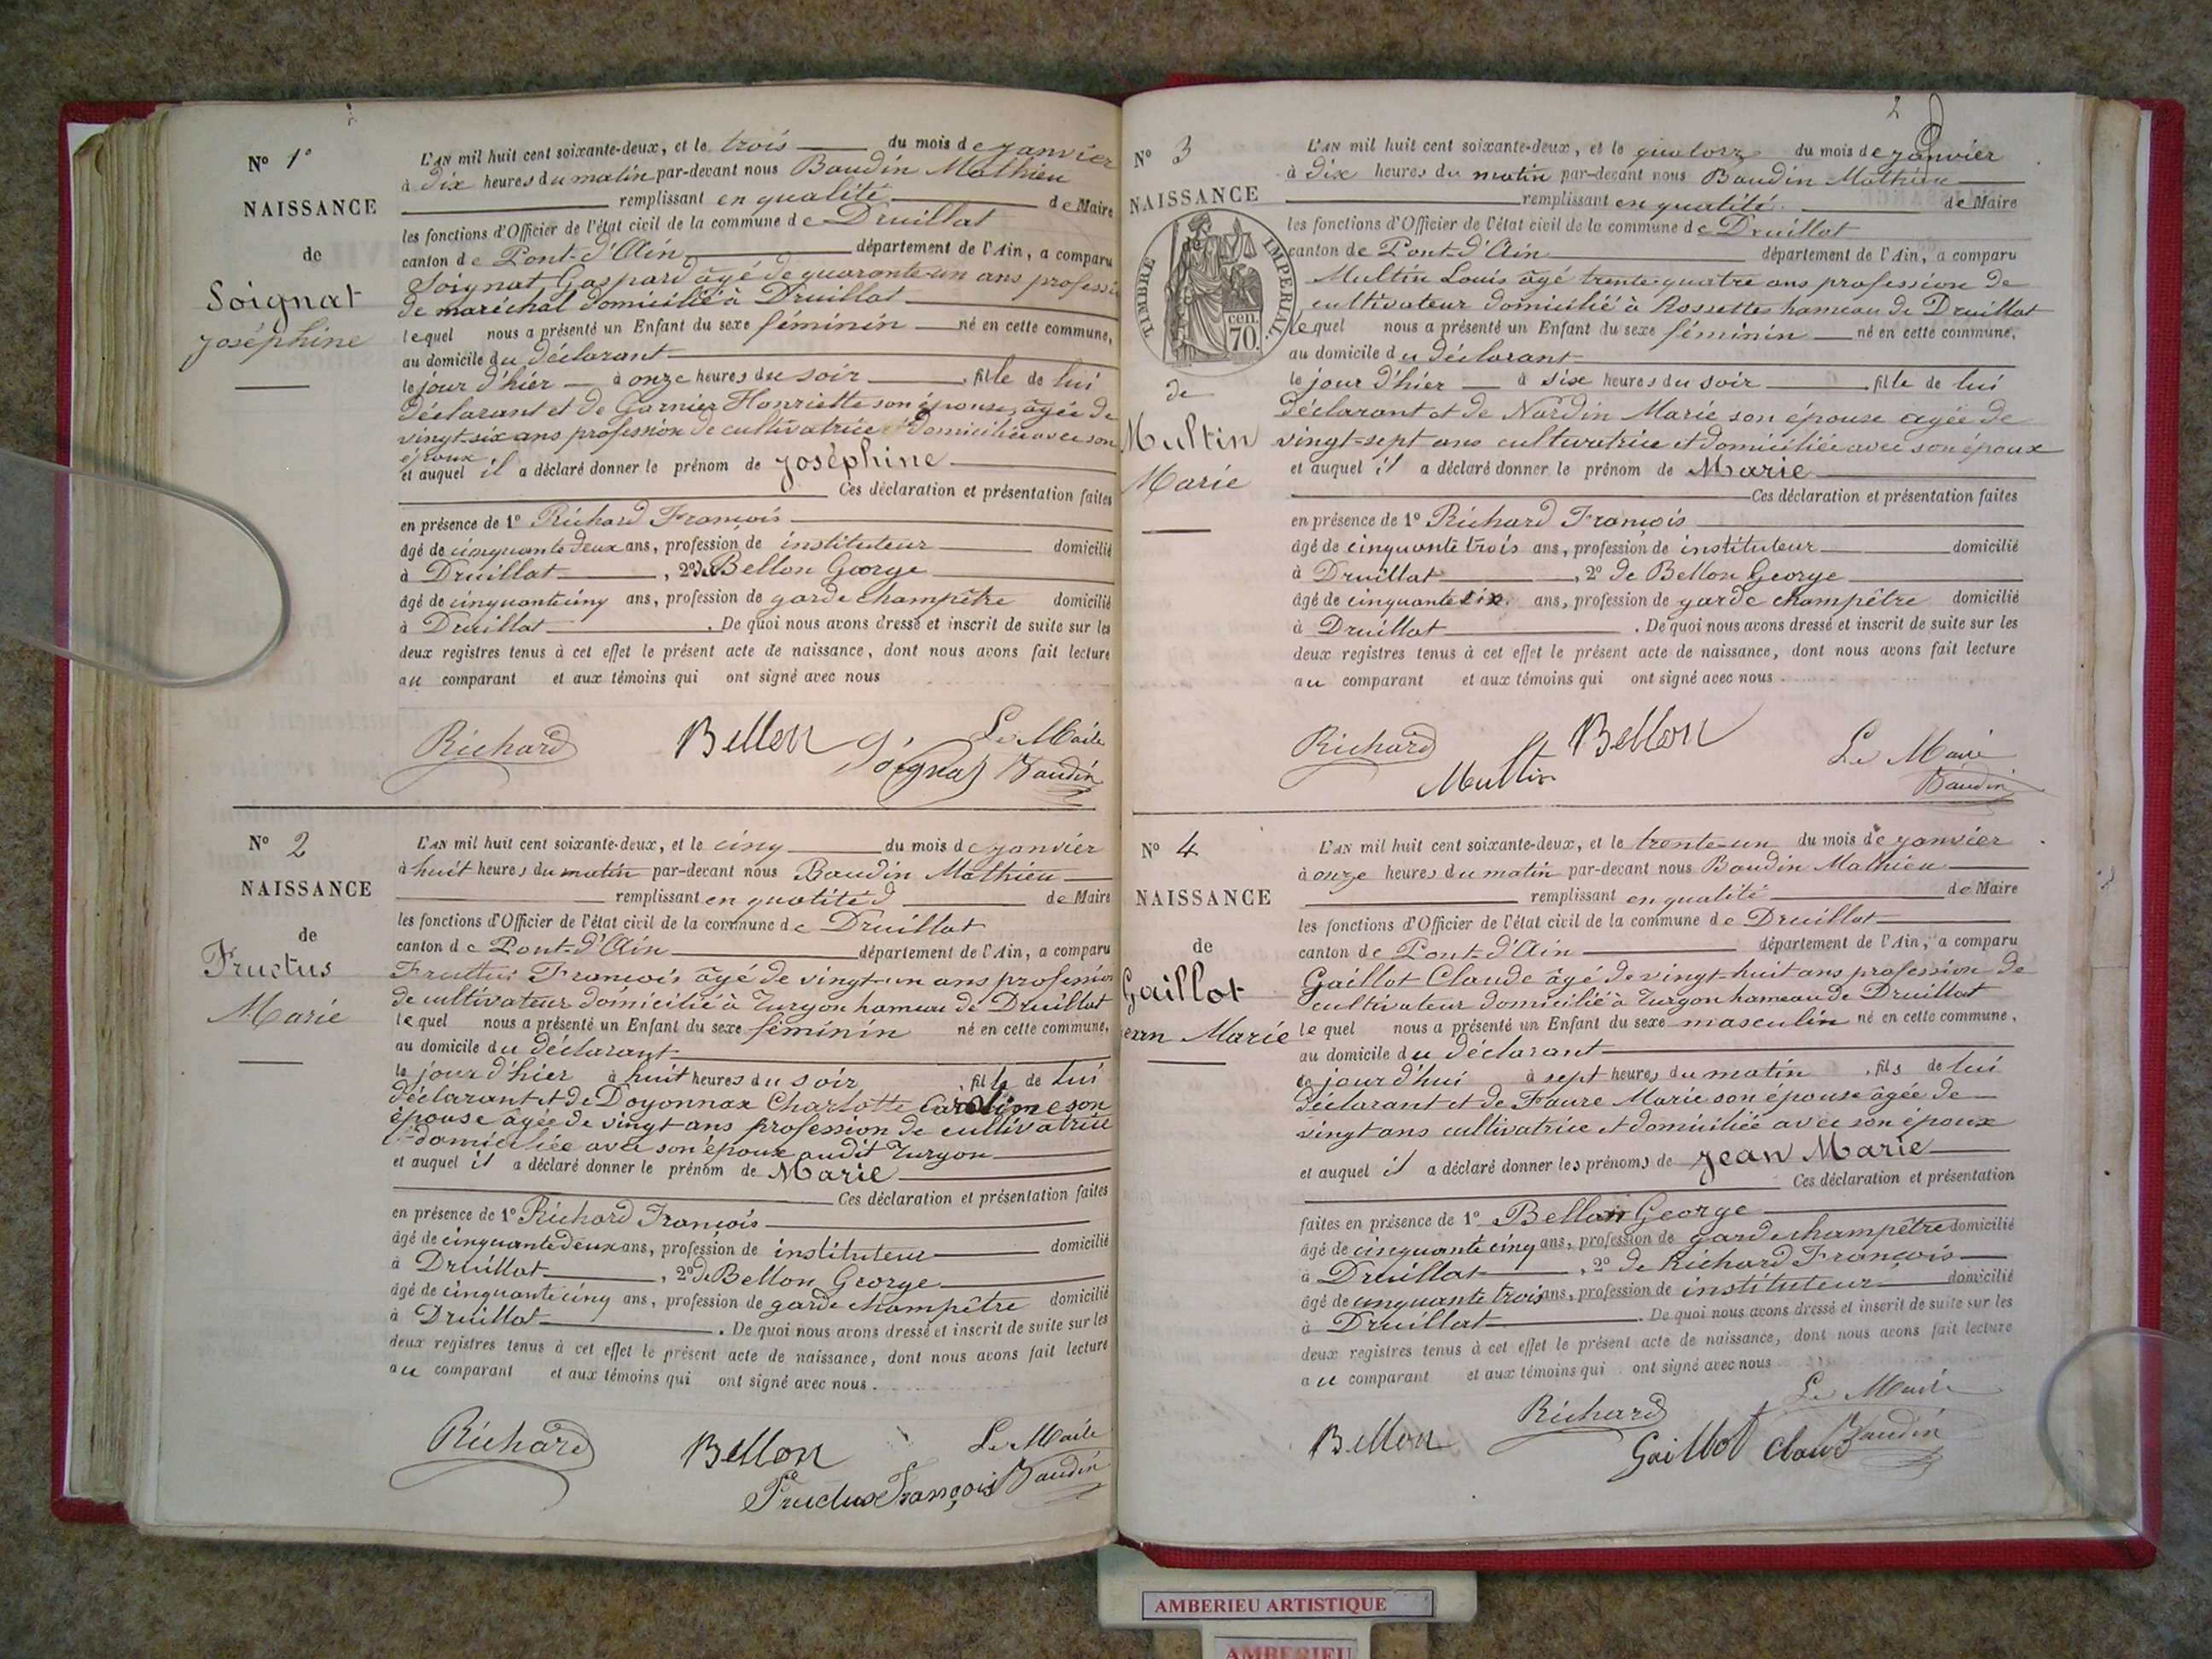 Nº 1º
NAISSANCE
de
Soignat
Joséphine
L'AN mil huit cent soixante-deux, et le trois du mois de janvier
à dix heures du matin par-devant nous Baudin Mathieu
remplissant en qualité de Maire
les fonctions d'Officier de l'état civil de la commune de Druillat
canton de Pont-d'Ain département de l'Ain, a comparu
Soignat Gaspard âgé de quarante-un ans professi
de maréchal domicilié à Druillat
lequel nous a présenté un Enfant du sexe féminin né en cette commune,
au domicile du déclarant
le jour d'hier à onze heures du soir , fille de lui
déclarant et de Garnier Henriette son épouse, âgée de
vingt-six ans profession de cultivatrice domiciliée avec son
époux
et auquel il a déclaré donner le prénom de Joséphine
Ces déclaration et présentation faites
en présence de 1º Richard François
âgé de cinquante deux ans, profession de instituteur domicilié
à Druillat , 2º de Bellon George
âgé de cinquante cinq ans, profession de garde champêtre domicilié
à Druillat . De quoi nous avons dressé et inscrit de suite sur les
deux registres tenus à cet effet le présent acte de naissance, dont nous avons fait lecture
au comparant et aux témoins qui ont signé avec nous
Richard Bellon Soignat Le Maire
Baudin
Nº 2
NAISSANCE
de
Fructus
Marie
L'AN mil huit cent soixante-deux, et le cinq du mois de janvier
à huit heures du matin par-devant nous Baudin Mathieu
remplissant en qualité d de Maire
les fonctions d'Officier de l'état civil de la commune de Druillat
canton de Pont-d'Ain département de l'Ain, a comparu
Fructus François âgé de vingt-un ans profession
de cultivateur domicilié à Turgon hameau de Druillat
lequel nous a présenté un Enfant du sexe féminin né en cette commune,
au domicile du déclarant
le jour d'hier à huit heures du soir , fille de lui
déclarant et de Doyonnax Charlotte Caroline son
épouse âgée de vingt ans profession de cultivatrice
domiciliée avec son époux audit Turgon
et auquel il a déclaré donner le prénom de Marie
Ces déclaration et présentation faites
en présence de 1º Richard François
âgé de cinquante deux ans, profession de instituteur domicilié
à Druillat , 2º de Bellon George
âgé de cinquante cinq ans, profession de garde champêtre domicilié
à Druillat . De quoi nous avons dressé et inscrit de suite sur les
deux registres tenus à cet effet le présent acte de naissance, dont nous avons fait lecture
au comparant et aux témoins qui ont signé avec nous.
Richard Bellon Le Maire
Fructus François Baudin
2
Nº 3
NAISSANCE
TIMBRE IMPERIAL.
70 cen.
de
Multin
Marie
L'AN mil huit cent soixante-deux, et le quatorz du mois de janvier
à dix heures du matin par-devant nous Baudin Mathieu
remplissant en qualité de Maire
les fonctions d'Officier de l'état civil de la commune de Druillat
canton de Pont-d'Ain département de l'Ain, a comparu
Multin Louis âgé trente-quatre ans profession de
cultivateur domicilié à Rossettes hameau de Druillat
lequel nous a présenté un Enfant du sexe féminin né en cette commune,
au domicile du déclarant
le jour d'hier à six heures du soir , fille de lui
déclarant et de Nardin Marie son épouse agée de
vingt-sept ans cultivatrice et domiciliée avec son époux
et auquel il a déclaré donner le prénom de Marie
Ces déclaration et présentation faites
en présence de 1º Richard François
âgé de cinquante trois ans, profession de instituteur domicilié
à Druillat , 2º de Bellon George
âgé de cinquante six ans, profession de garde champêtre domicilié
à Druillat . De quoi nous avons dressé et inscrit de suite sur les
deux registres tenus à cet effet le présent acte de naissance, dont nous avons fait lecture
au comparant et aux témoins qui ont signé avec nous.
Richard Bellon Le Maire
Multin Baudin
Nº 4
NAISSANCE
de
Gaillot
ean Marie
L'AN mil huit cent soixante-deux, et le trente-un du mois de janvier
à onze heures du matin par-devant nous Baudin Mathieu
remplissant en qualité de Maire
les fonctions d'Officier de l'état civil de la commune de Druillat
canton de Pont-d'Ain département de l'Ain, a comparu
Gaillot Claude âgé de vingt-huit ans profession de
cultivateur domicilié à Turgon hameau de Druillat
lequel nous a présenté un Enfant du sexe masculin né en cette commune,
au domicile du déclarant
le jour d'hui à sept heures du matin , fils de lui
déclarant et de Faure Marie son épouse âgée de
vingt ans cultivatrice et domiciliée avec son époux
et auquel il a déclaré donner les prénoms de Jean Marie
Ces déclaration et présentation
faites en présence de 1º Bellon George
âgé de cinquante cinq ans, profession de garde champêtre domicilié
à Druillat , 2º de Richard François
âgé de cinquante trois ans, profession de instituteur domicilié
à Druillat . De quoi nous avons dressé et inscrit de suite sur les
deux registres tenus à cet effet le présent acte de naissance, dont nous avons fait lecture
au comparant et aux témoins qui ont signé avec nous
Bellon Richard Le Maire
Gaillot Claude Baudin
AMBERIEU ARTISTIQUE
AMBERIEU